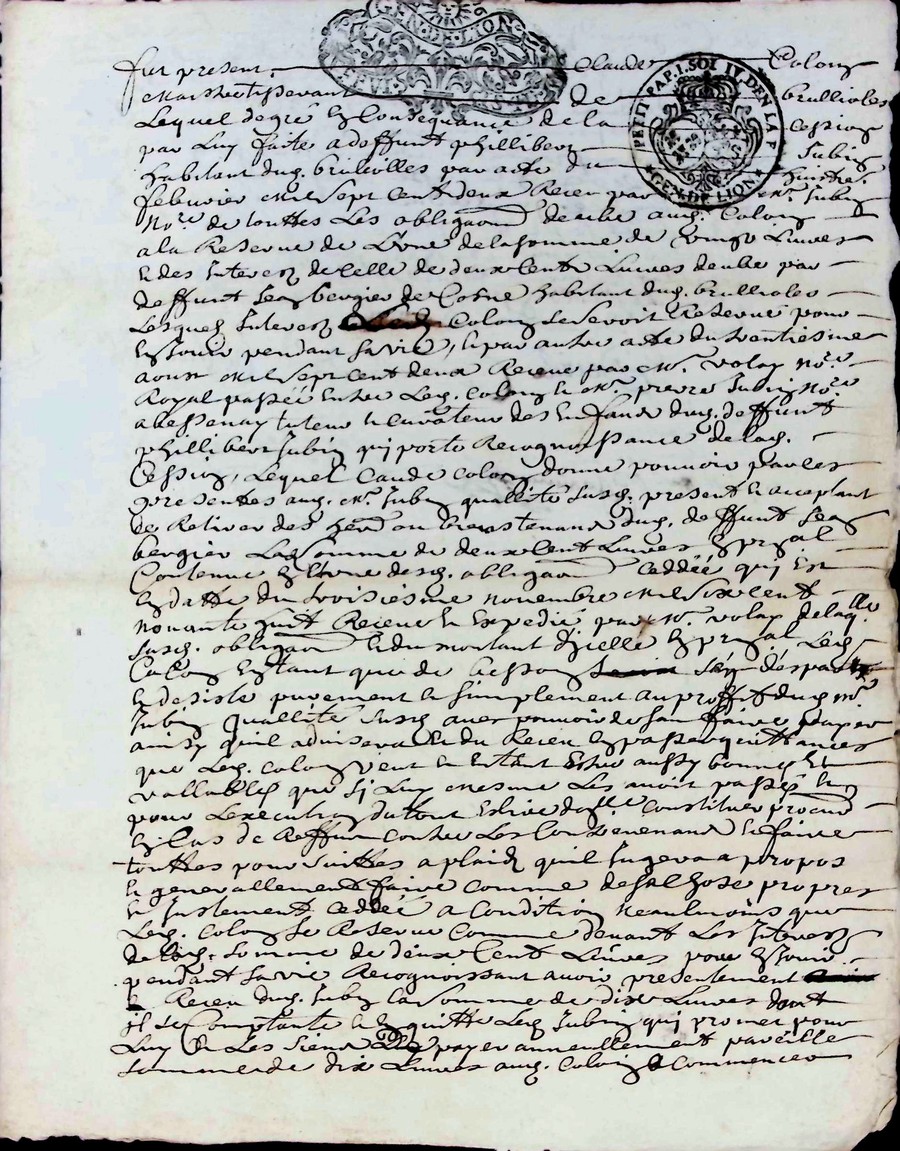 GEN · DE · LION
PETIT PAP. 1. SOL IV. DEN. LA F
GEN. DE LION
fut present Claude Colony
de brullioles
Lequel de gré En Consequance de la Cession
par Luy faite a deffunt phillibert Jubin
habitant dud. brulliolles par acte du huict.e
febvrier mil sept cent deux Receu par Me. Jubin
No.re de touttes Les obligaon deube aud. Colony
a la Reserve de L'une de la somme de vingt Livres
& des Interez de celle de deux Cent Livres deube par
deffunt Jean bergier de Cosne habitant dud. brullioles
Lesquelz Interez Colony se seroit Reservé pour
En Jouir pendant sa vie, & par autre acte du trentiesme
aoust mil sept cent deux Receu par Me. volay No.re
Royal passée entre Led. Colony & Me. pierre Jubin No.re
a bessenay tuteur & Curateur des Enfans dud. deffunt
phillibert Jubin qui porte Recognoissance de lad.
Cession, Lequel Claude Colony donne pouvoir par ces
presentes aud. Me. Jubin quallité susd. present & acceptant
de Retirer des her. ou biens tenans dud. deffunt Jean
bergier Lad. somme de deux Cent Livres En p.al
Contenue En L'une desd. obligaon Ceddée qui Est
En datte du troisiesme novembre mil six cent
nonante huit Receue & Expedié par Me. volay de laq.lle
susd. obligaon & du montant d'icelle En p.al Led.
Colony En tant que de besoin s'en
& desiste purement & simplement au proffit dud. Me.
Jubin quallité susd. avec pouvoir de s'en faire payer
ainsy quil advisera & du Receu En passer quittances
que Led. Colony veut & Entant Estre aussy bonnes &
vallables que si Luy mesme Les avoit passés &
pour L'execution du tout Constituer procur
En Cas de Reffus contre Les Contrevenans & faire
touttes poursuittes a plaid quil Jugera a propos
& generallement faire comme de sa chose propre
& Justement Ceddée a Condition neaulmoins que
Led. Colony se Reserve Comme devant Les Interez
de lad. somme de deux Cent Livres pour En Jouir
pendant sa vie Recognoissant avoir presentement
Receu dud. Jubin la somme de dix Livres dont
il se Comptante & En quitte Led. Jubin qui promet pour
Luy & Les siens payer annuellement pareille
somme de dix Livres aud. Colony a Commencer